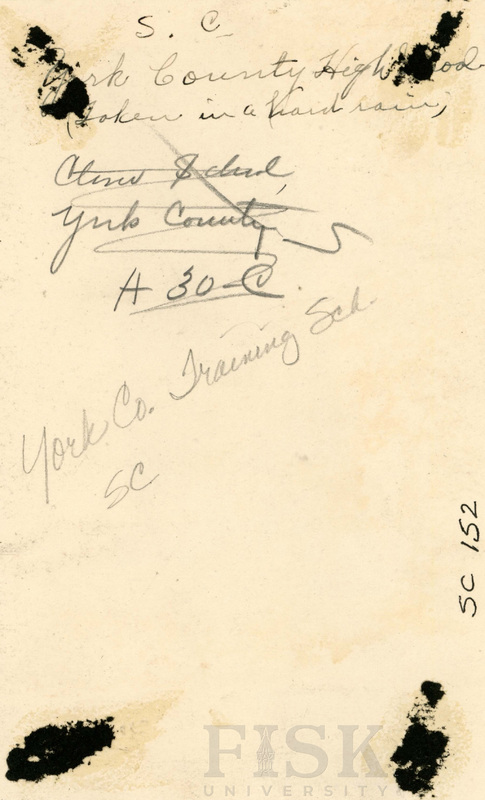 S. C.
York County High School
(taken in a hard rain)
School,
York County
A 30-C.
York Co. Training Sch.
SC
SC 152
FISK
UNIVERSITY